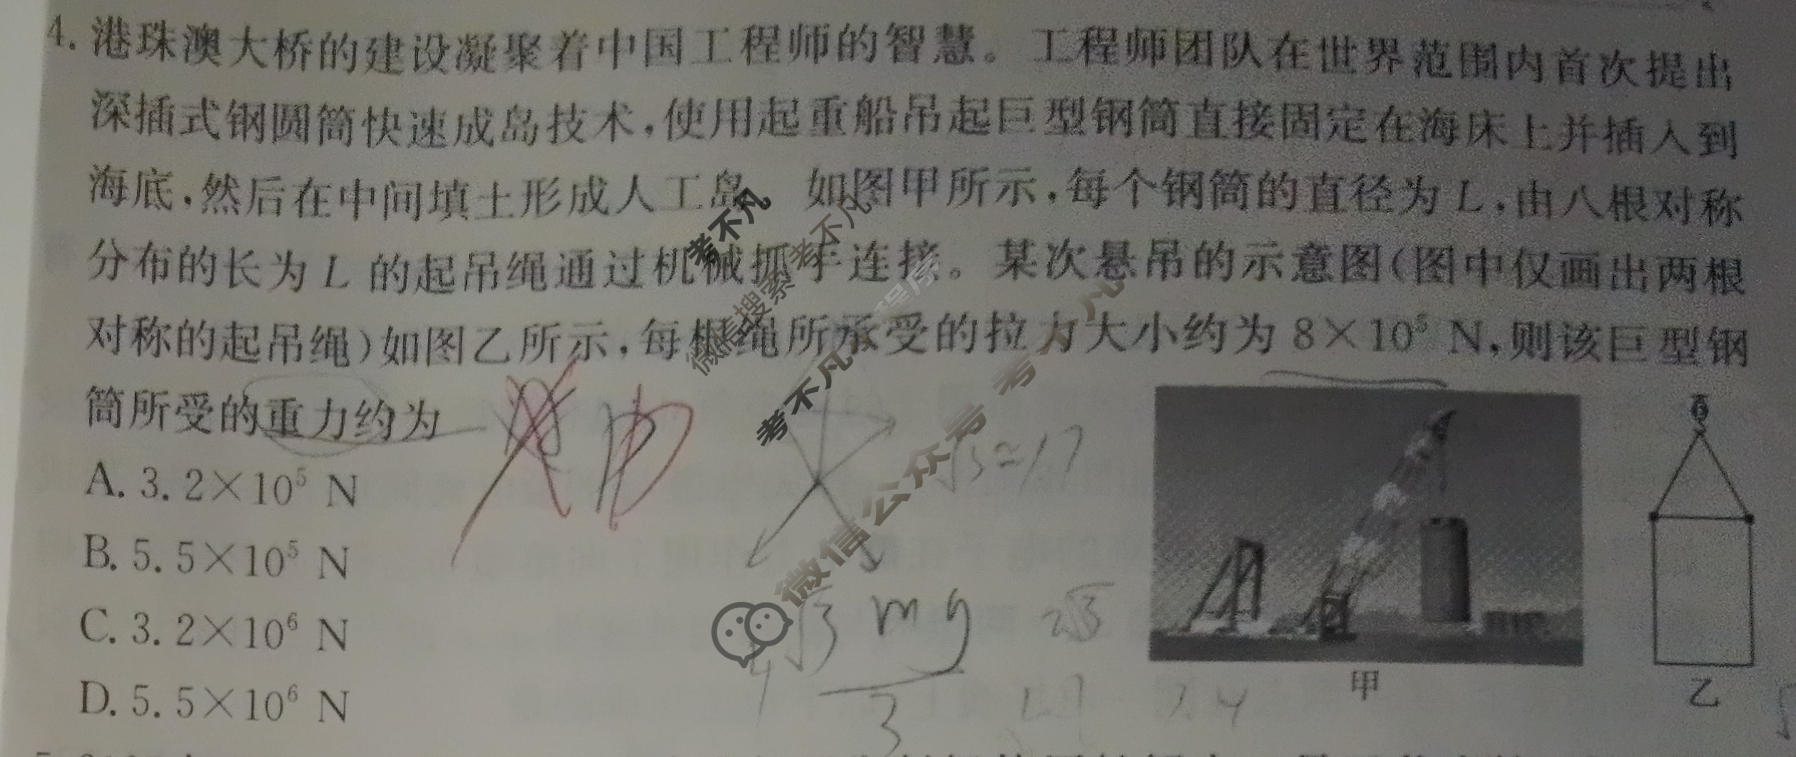 4. 港珠澳大桥的建设凝聚着中国工程师的智慧。工程师团队在世界范围内首次提出
深插式钢圆筒快速成岛技术,使用起重船吊起巨型钢筒直接固定在海床上并插入到
海底,然后在中间填土形成人工岛 如图甲所示,每个钢筒的直径为 L,由八根对称
分布的长为 L 的起吊绳通过机械抓手连接。某次悬吊的示意图(图中仅画出两根
对称的起吊绳)如图乙所示,每根绳所承受的拉力大小约为 8×10⁵ N,则该巨型钢
筒所受的重力约为
A. 3. 2×10⁵ N
B. 5. 5×10⁵ N
C. 3. 2×10⁶ N
D. 5. 5×10⁶ N
甲
乙
考不凡
考不凡
微信搜索
考不凡
程序
微信公众号
考不凡
√3≈1.7
√3 mg
3
2√3
D